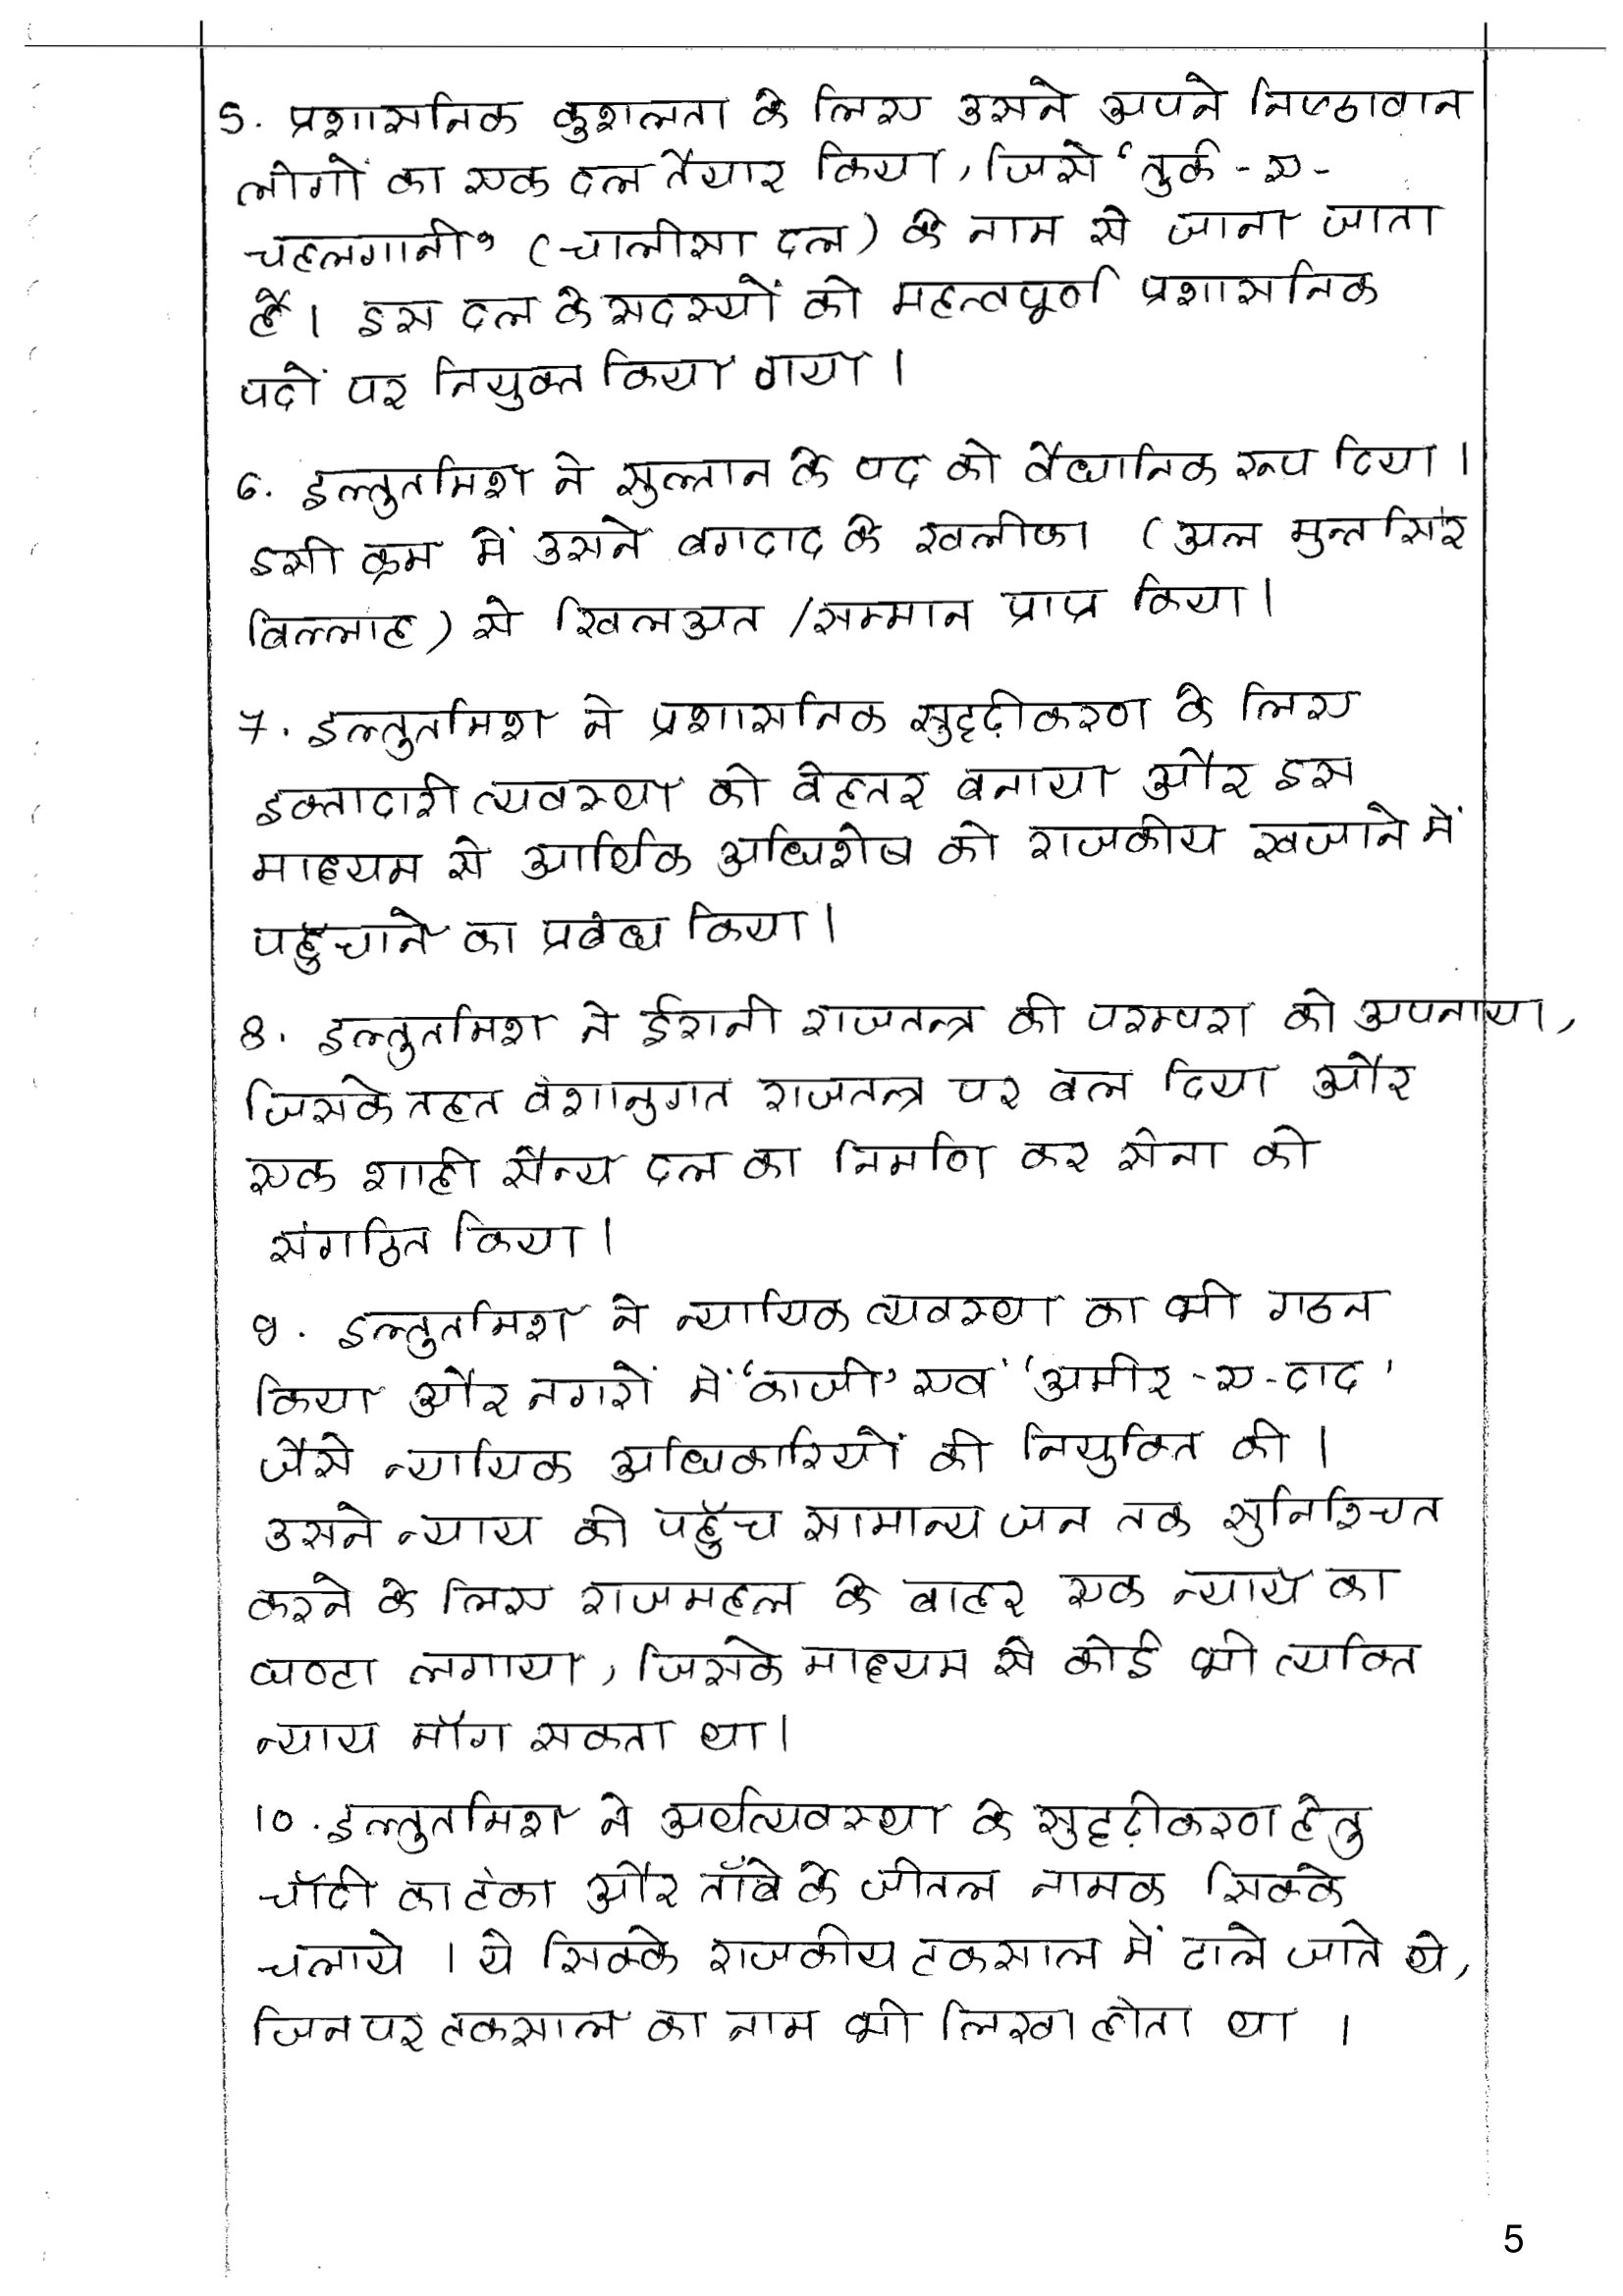 5. प्रशासनिक कुशलता के लिए उसने अपने निष्ठावान
लोगों का एक दल तैयार किया, जिसे 'तुर्क-ए-
चहलगानी' (चालीसा दल) के नाम से जाना जाता
है। इस दल के सदस्यों को महत्वपूर्ण प्रशासनिक
पदों पर नियुक्त किया गया।
6. इल्तुतमिश ने सुल्तान के पद को वैधानिक रूप दिया।
इसी क्रम में उसने बगदाद के खलीफा (अल मुन्तसिर
बिल्लाह) से खिलअत /सम्मान प्राप्त किया।
7. इल्तुतमिश ने प्रशासनिक सुदृढ़ीकरण के लिए
इक्तादारी व्यवस्था को बेहतर बनाया और इस
माध्यम से आर्थिक अधिशेष को राजकीय खजाने में
पहुँचाने का प्रबंध किया।
8. इल्तुतमिश ने ईरानी राजतन्त्र की परम्परा को अपनाया,
जिसके तहत वंशानुगत राजतन्त्र पर बल दिया और
एक शाही सैन्य दल का निर्माण कर सेना को
संगठित किया।
9. इल्तुतमिश ने न्यायिक व्यवस्था का भी गठन
किया और नगरों में 'काजी' एवं 'अमीर-ए-दाद'
जैसे न्यायिक अधिकारियों की नियुक्ति की।
उसने न्याय की पहुँच सामान्य जन तक सुनिश्चित
करने के लिए राजमहल के बाहर एक न्याय का
घण्टा लगाया, जिसके माध्यम से कोई भी व्यक्ति
न्याय माँग सकता था।
10. इल्तुतमिश ने अर्थव्यवस्था के सुदृढ़ीकरण हेतु
चाँदी का टंका और ताँबे के जीतल नामक सिक्के
चलाये। ये सिक्के राजकीय टकसाल में ढाले जाते थे,
जिन पर टकसाल का नाम भी लिखा होता था।
5